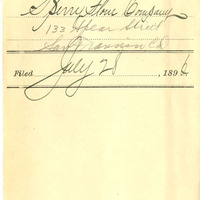 Sperry Flour Company
133 Spear Street
San Francisco Cal
Filed July 28, 1896